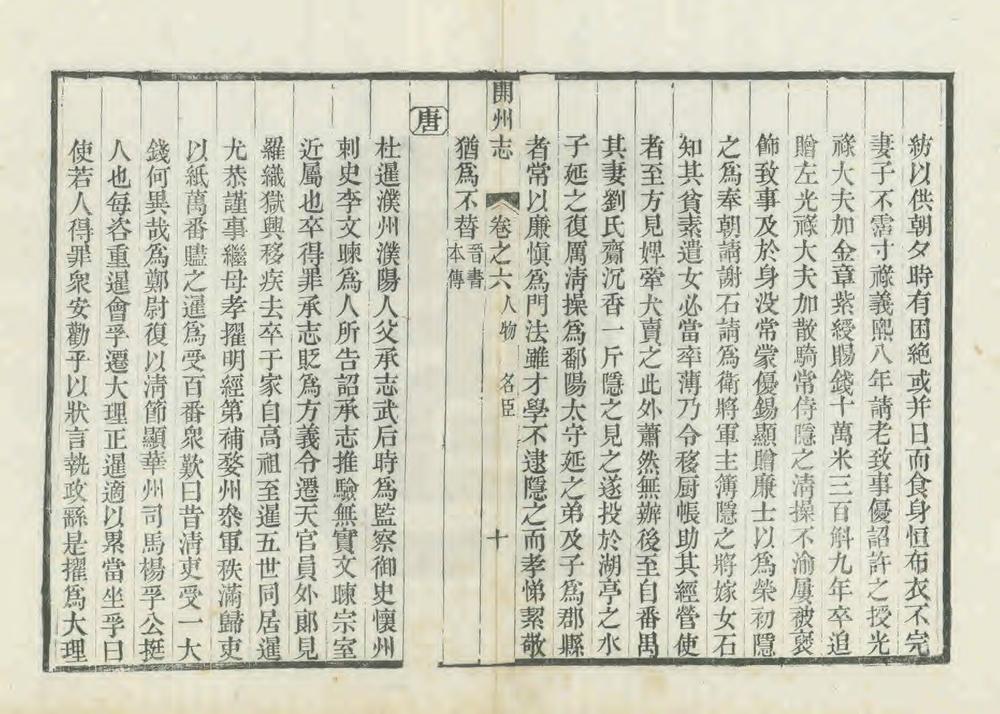 紡以供朝夕時有困絕或并日而食身恒布衣不完
妻子不霑寸祿義熙八年請老致事優詔許之授光
祿大夫加金章紫綬賜錢十萬米三百斛九年卒追
贈左光祿大夫加散騎常侍隱之清操不渝屢被褒
飾致事及於身没常蒙優錫顯贈廉士以爲榮初隱
之爲奉朝請謝石請爲衛將軍主簿隱之將嫁女石
知其貧素遣女必當率薄乃令移厨帳助其經營使
者至方見婢牽犬賣之此外蕭然無辦後至自番禺
其妻劉氏齎沉香一斤隱之見之遂投於湖亭之水
子延之復厲清操爲鄱陽太守延之弟及子爲郡縣
者常以廉愼爲門法雖才學不逮隱之而孝悌絜敬
猶爲不替晉書本傳
開州志 卷之六 人物 名臣 十
唐
杜暹濮州濮陽人父承志武后時爲監察御史懷州
刺史李文暕爲人所告詔承志推驗無實文暕宗室
近屬也卒得罪承志貶爲方義令遷天官員外郞見
羅織獄興移疾去卒于家自高祖至暹五世同居暹
尤恭謹事繼母孝擢明經第補婺州叅軍秩滿歸吏
以紙萬番贐之暹爲受百番衆歎曰昔清吏受一大
錢何異哉爲鄭尉復以清節顯華州司馬楊孚公挺
人也每咨重暹會孚遷大理正暹適以累當坐孚曰
使若人得罪衆安勸乎以狀言執政繇是擢爲大理